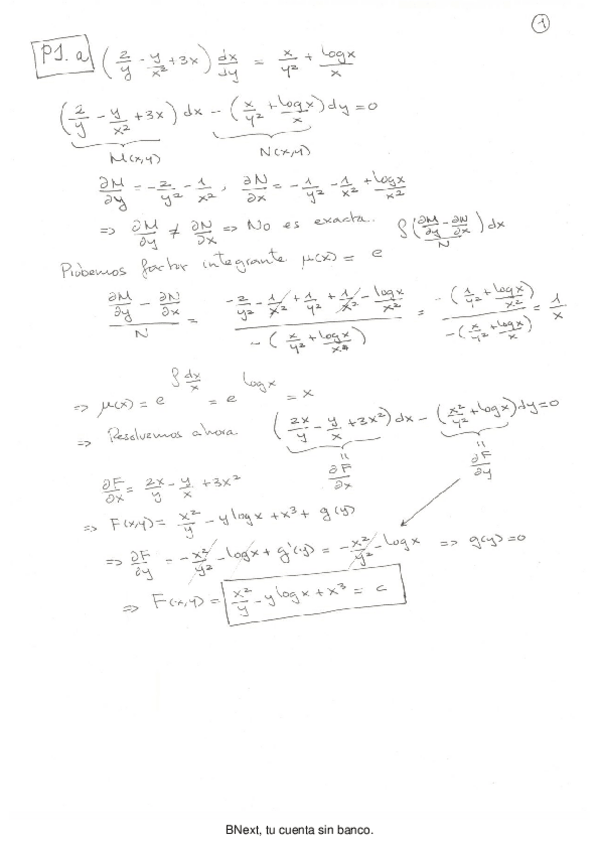 1
P1. a (2/y - y/x² + 3x) dx/dy = x/y² + log x/x
(2/y - y/x² + 3x) dx - (x/y² + log x/x) dy = 0
M(x,y) N(x,y)
∂M/∂y = -2/y² - 1/x², ∂N/∂x = -1/y² - 1/x² + log x/x²
⇒ ∂M/∂y ≠ ∂N/∂x ⇒ No es exacta.
Probemos factor integrante μ(x) = e^∫((∂M/∂y - ∂N/∂x)/N) dx
(∂M/∂y - ∂N/∂x)/N = (-2/y² - 1/x² + 1/y² + 1/x² - log x/x²)/(-(x/y² + log x/x)) = (-(1/y² + log x/x²))/(-(x/y² + log x/x)) = 1/x
⇒ μ(x) = e^∫dx/x = e^log x = x
⇒ Resolvemos ahora (2x/y - y/x + 3x²) dx - (x²/y² + log x) dy = 0
= ∂F/∂x = ∂F/∂y
∂F/∂x = 2x/y - y/x + 3x²
⇒ F(x,y) = x²/y - y log x + x³ + g(y)
⇒ ∂F/∂y = -x²/y² - log x + g'(y) = -x²/y² - log x ⇒ g(y) = 0
⇒ F(x,y) = x²/y - y log x + x³ = c
BNext, tu cuenta sin banco.